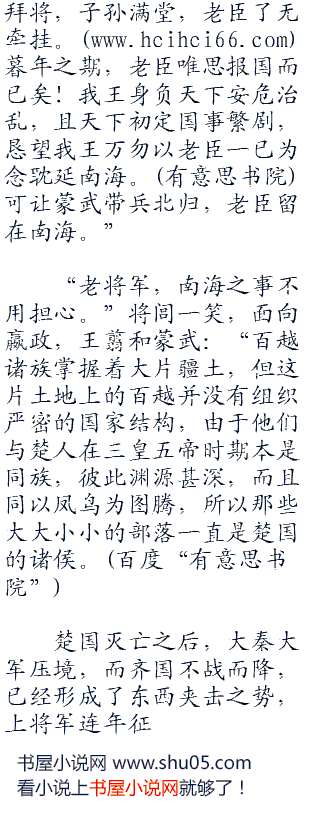 拜将，子孙满堂，老臣了无
牵挂。(www.hcihci66.com)
暮年之期，老臣唯思报国而
已矣！我王身负天下安危治
乱，且天下初定国事繁剧，
恳望我王万勿以老臣一已为
念耽延南海。(有意思书院)
可让蒙武带兵北归，老臣留
在南海。”
“老将军，南海之事不
用担心。”将闾一笑，面向
嬴政，王翦和蒙武：“百越
诸族掌握着大片疆土，但这
片土地上的百越并没有组织
严密的国家结构，由于他们
与楚人在三皇五帝时期本是
同族，彼此渊源甚深，而且
同以凤鸟为图腾，所以那些
大大小小的部落一直是楚国
的诸侯。(百度“有意思书
院”)
楚国灭亡之后，大秦大
军压境，而齐国不战而降，
已经形成了东西夹击之势，
上将军连年征
书屋小说网 www.shu05.com
看小说上书屋小说网就够了！